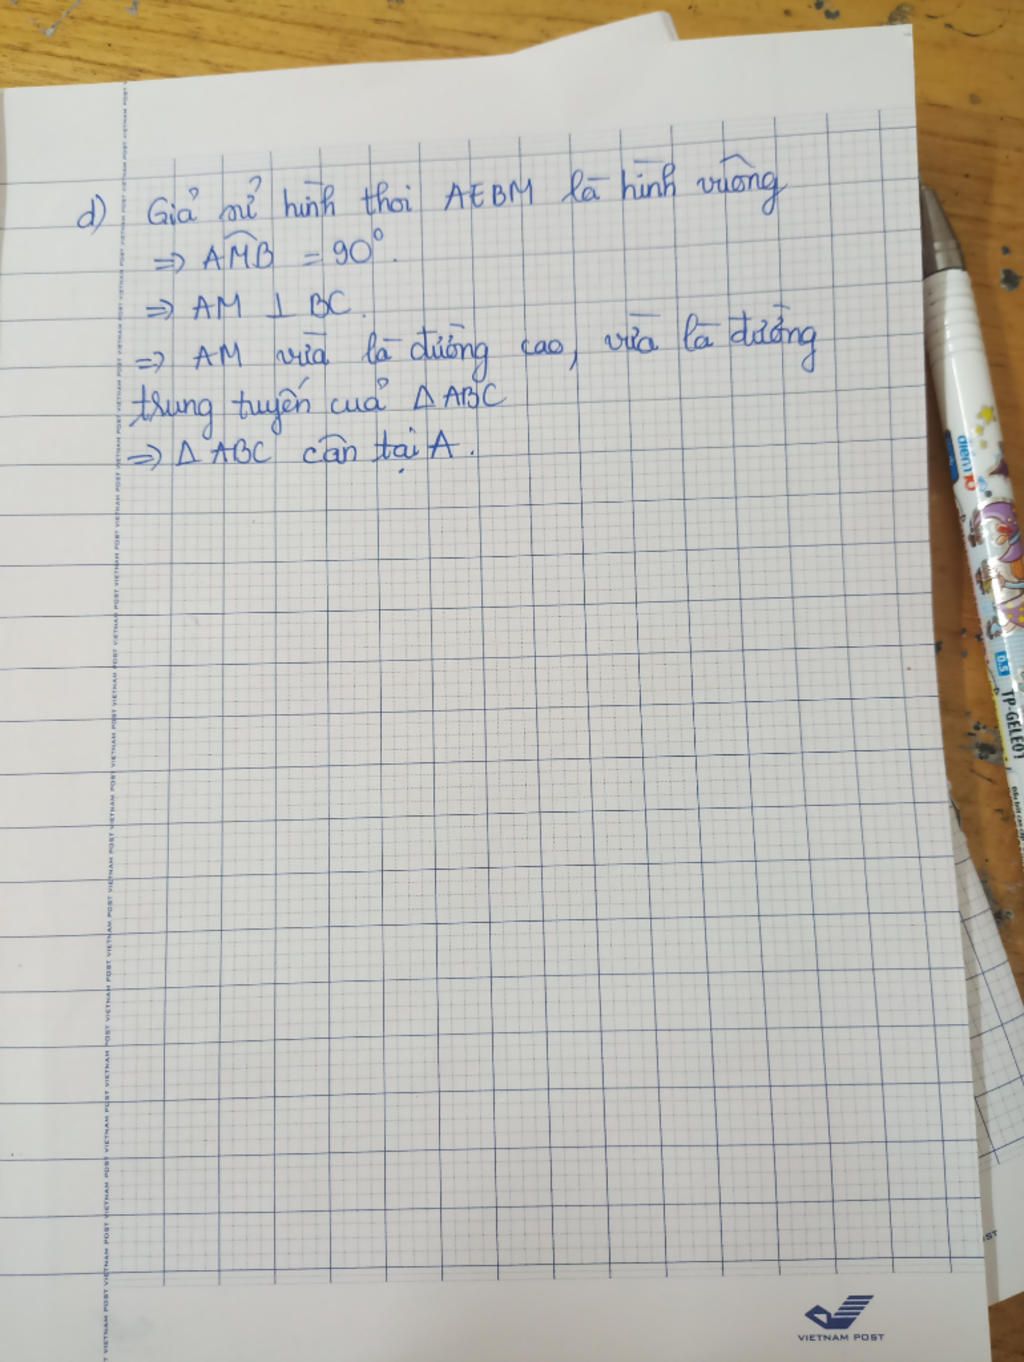 d) Giả sử hình thoi AEBM là hình vuông
⇒ AMB = 90°.
⇒ AM ⊥ BC.
⇒ AM vừa là đường cao, vừa là đường
trung tuyến của Δ ABC
⇒ Δ ABC cân tại A.
điểm 10
0.5
TP-GELE01
VIETNAM POST